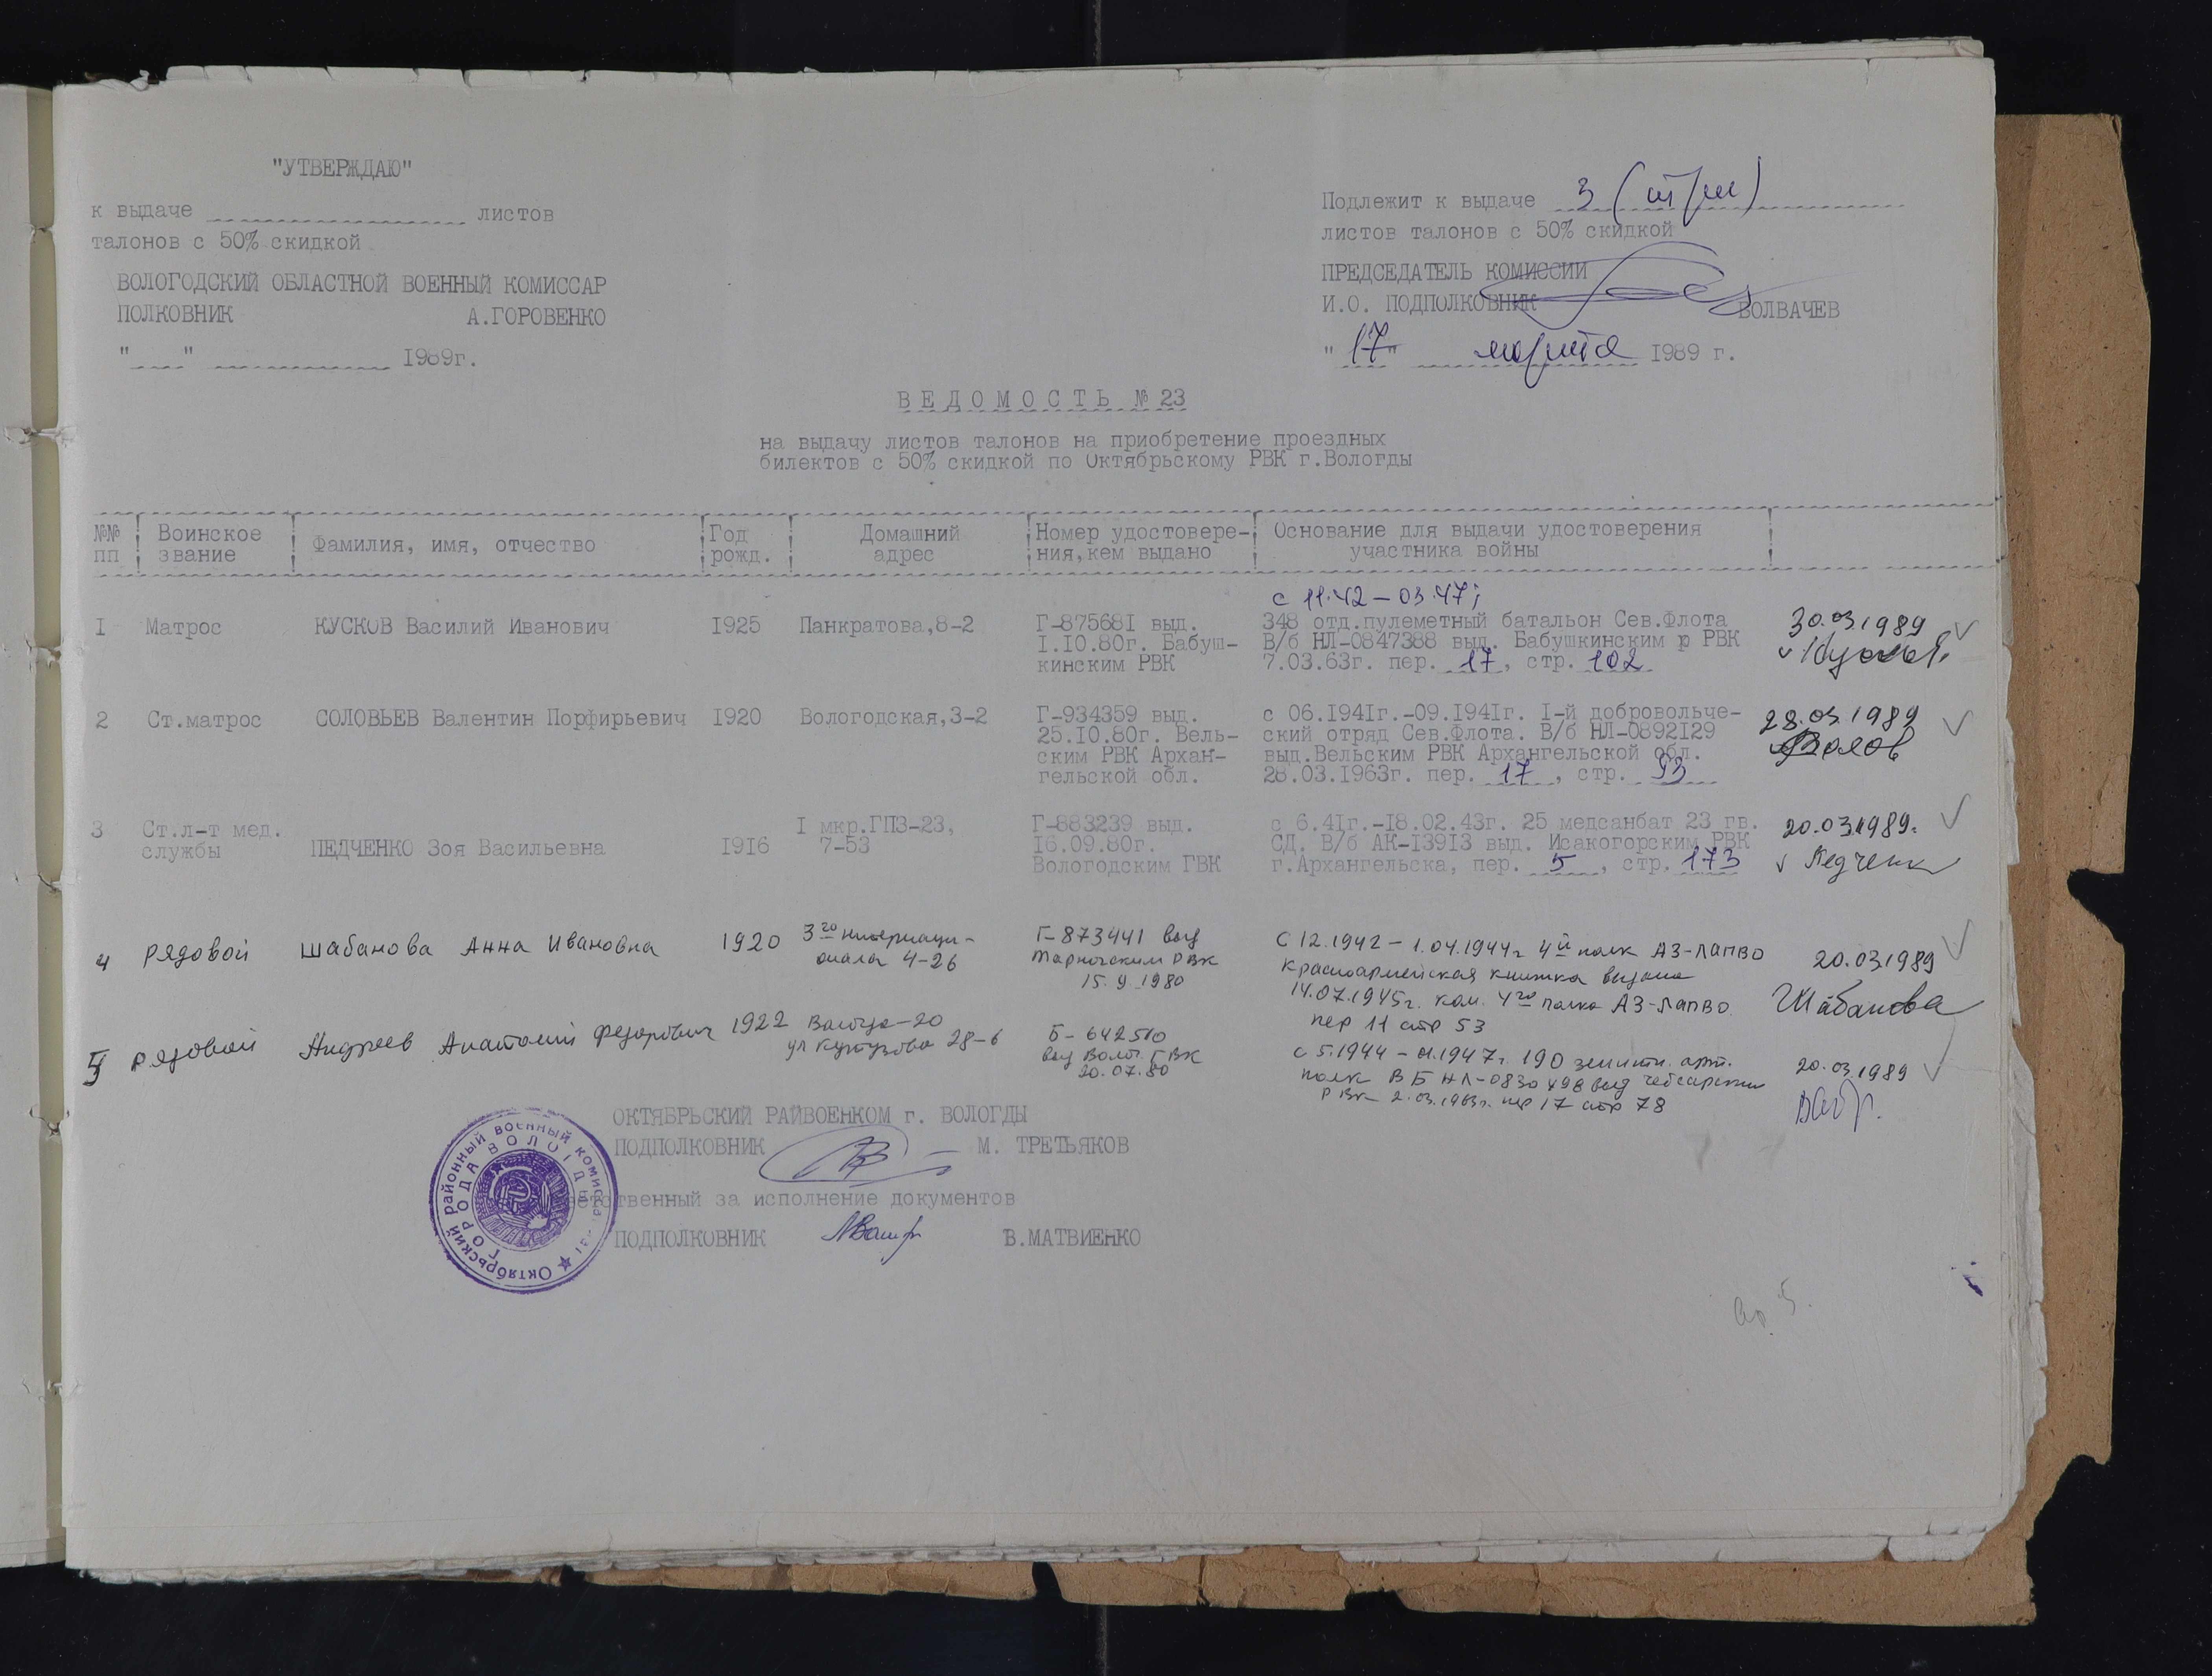 "УТВЕРЖДАЮ"
к выдаче листов
талонов с 50% скидкой
ВОЛОГОДСКИЙ ОБЛАСТНОЙ ВОЕННЫЙ КОМИССАР
ПОЛКОВНИК А.ГОРОВЕНКО
" " 1989г.
Подлежит к выдаче 3 (три)
листов талонов с 50% скидкой
ПРЕДСЕДАТЕЛЬ КОМИССИИ
И.О. ПОДПОЛКОВНИК ВОЛВАЧЕВ
"17" марта 1989 г.
ВЕДОМОСТЬ № 23
на выдачу листов талонов на приобретение проездных
билектов с 50% скидкой по Октябрьскому РВК г.Вологды
№№ пп
Воинское звание
Фамилия, имя, отчество
Год рожд.
Домашний адрес
Номер удостовере-
ния,кем выдано
Основание для выдачи удостоверения
участника войны
1 Матрос КУСКОВ Василий Иванович 1925 Панкратова,8-2
Г-875681 выд.
1.10.80г. Бабуш-
кинским РВК
с 11.42 - 03.47;
348 отд.пулеметный батальон Сев.Флота
В/б НЛ-0847388 выд. Бабушкинским р РВК
7.03.63г. пер. 17, стр. 102
30.03.1989
2 Ст.матрос СОЛОВЬЕВ Валентин Порфирьевич 1920 Вологодская,3-2
Г-934359 выд.
25.10.80г. Вель-
ским РВК Архан-
гельской обл.
с 06.1941г.-09.1941г. 1-й добровольче-
ский отряд Сев.Флота. В/б НЛ-0892129
выд.Вельским РВК Архангельской обл.
28.03.1963г. пер. 17, стр. 93
28.03.1989
3 Ст.л-т мед.
службы
ПЕДЧЕНКО Зоя Васильевна 1916
1 мкр.ГПЗ-23,
7-53
Г-883239 выд.
16.09.80г.
Вологодским ГВК
с 6.41г.-18.02.43г. 25 медсанбат 23 гв.
СД. В/б АК-13913 выд. Исакогорским РВК
г.Архангельска, пер. 5, стр. 173
20.03.1989.
Педченк
4 рядовой Шабанова Анна Ивановна 1920
3го интернаци-
онала 4-26
Г-873441 выд
Тарногским РВК
15.9.1980
С 12.1942 - 1.04.1944г 4й полк АЗ-ЛАПВО
Красноармейская книжка выдана
14.07.1945г. ком. 4го полка АЗ-ЛАПВО.
пер 11 стр 53
20.03.1989
Шабанова
5 рядовой Андреев Анатолий Федорович 1922
Вологда-20
ул Кутузова 28-6
Б-642510
выд Волог. ГВК
20.07.80
с 5.1944 - 01.1947г. 190 зенитн. арт.
полк ВБ НЛ-0830498 выд Чебсарским
РВК 2.03.1963г. пер 17 стр 78
20.03.1989
ОКТЯБРЬСКИЙ РАЙВОЕНКОМ г. ВОЛОГДЫ
ПОДПОЛКОВНИК М. ТРЕТЬЯКОВ
етственный за исполнение документов
ПОДПОЛКОВНИК В.МАТВИЕНКО
Октябрьский районный военный комисс
ГОРОДА ВОЛОГДЫ